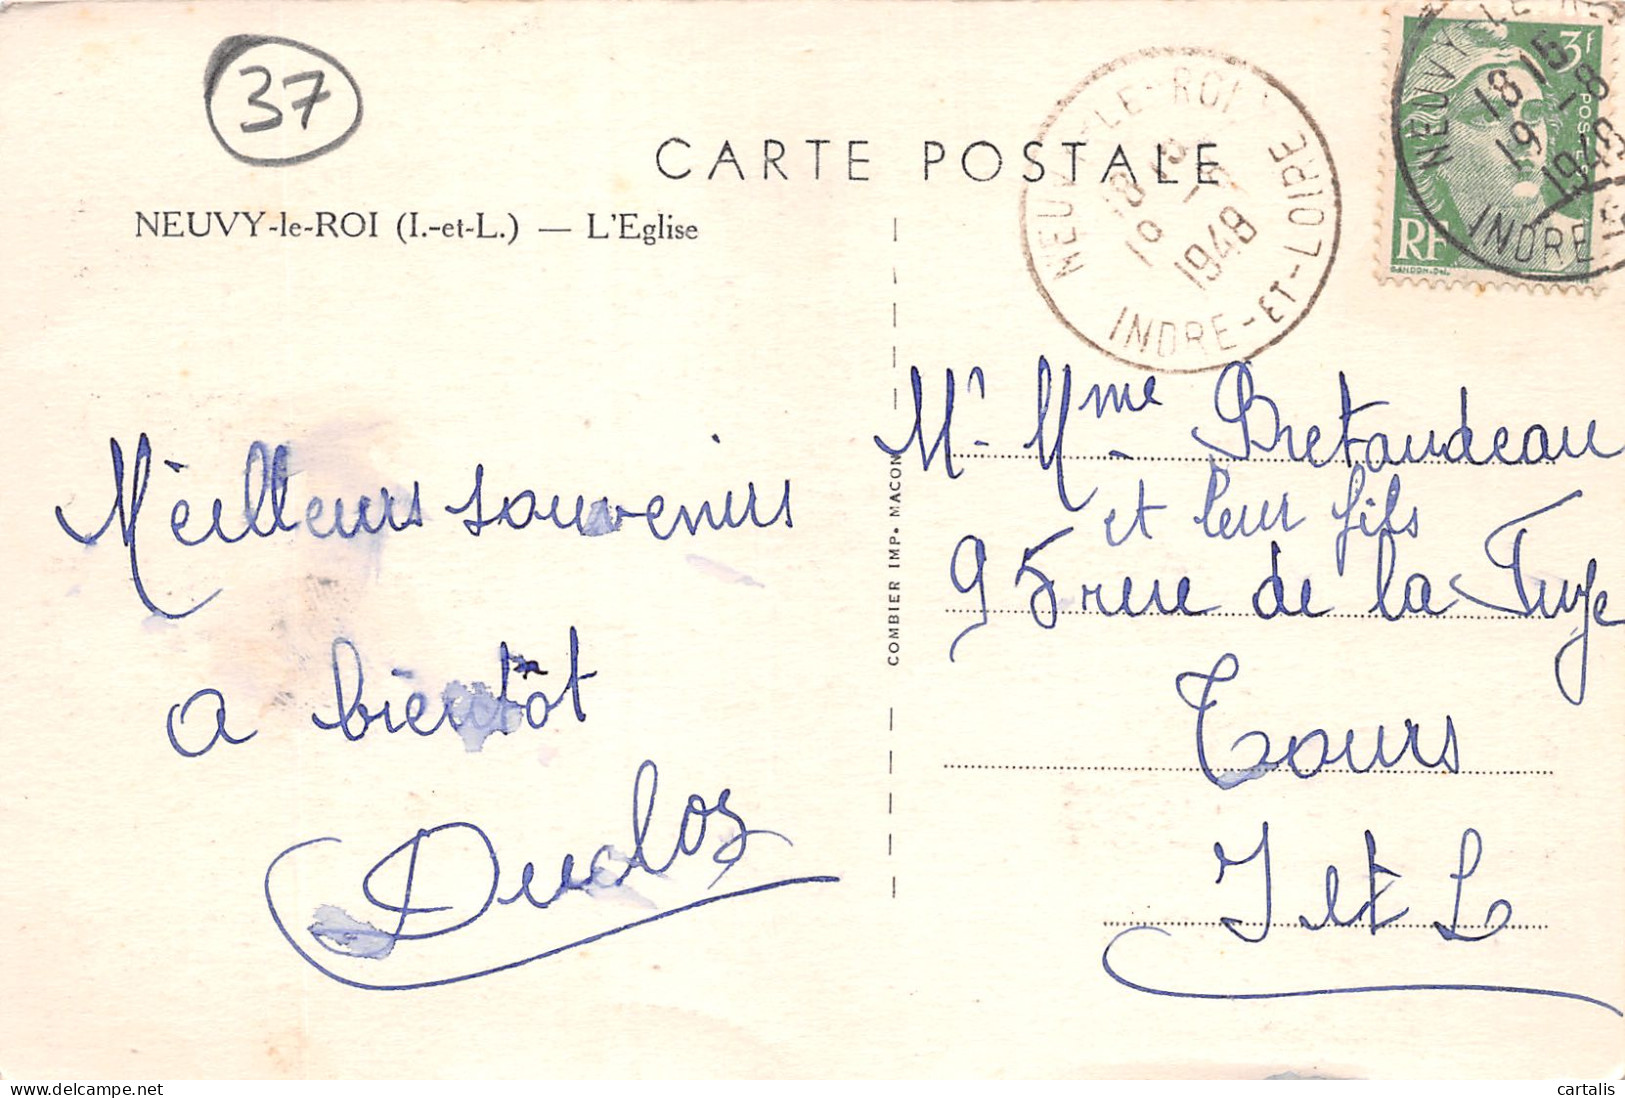 37
CARTE POSTALE
NEUVY-le-ROI (I.-et-L.) — L'Eglise
NEUVY-LE-ROI
INDRE-ET-LOIRE
1948
3f
POSTES
RF
GANDON-Del.
NEUVY-LE-ROI
18 15
19 -8
1948
INDRE
Meilleurs souvenirs
a bientôt
Duclos
COMBIER IMP. MACON
Mr Mme Bretaudeau
et leur fils
95 rue de la Fuye
Tours
I et L
cartalis